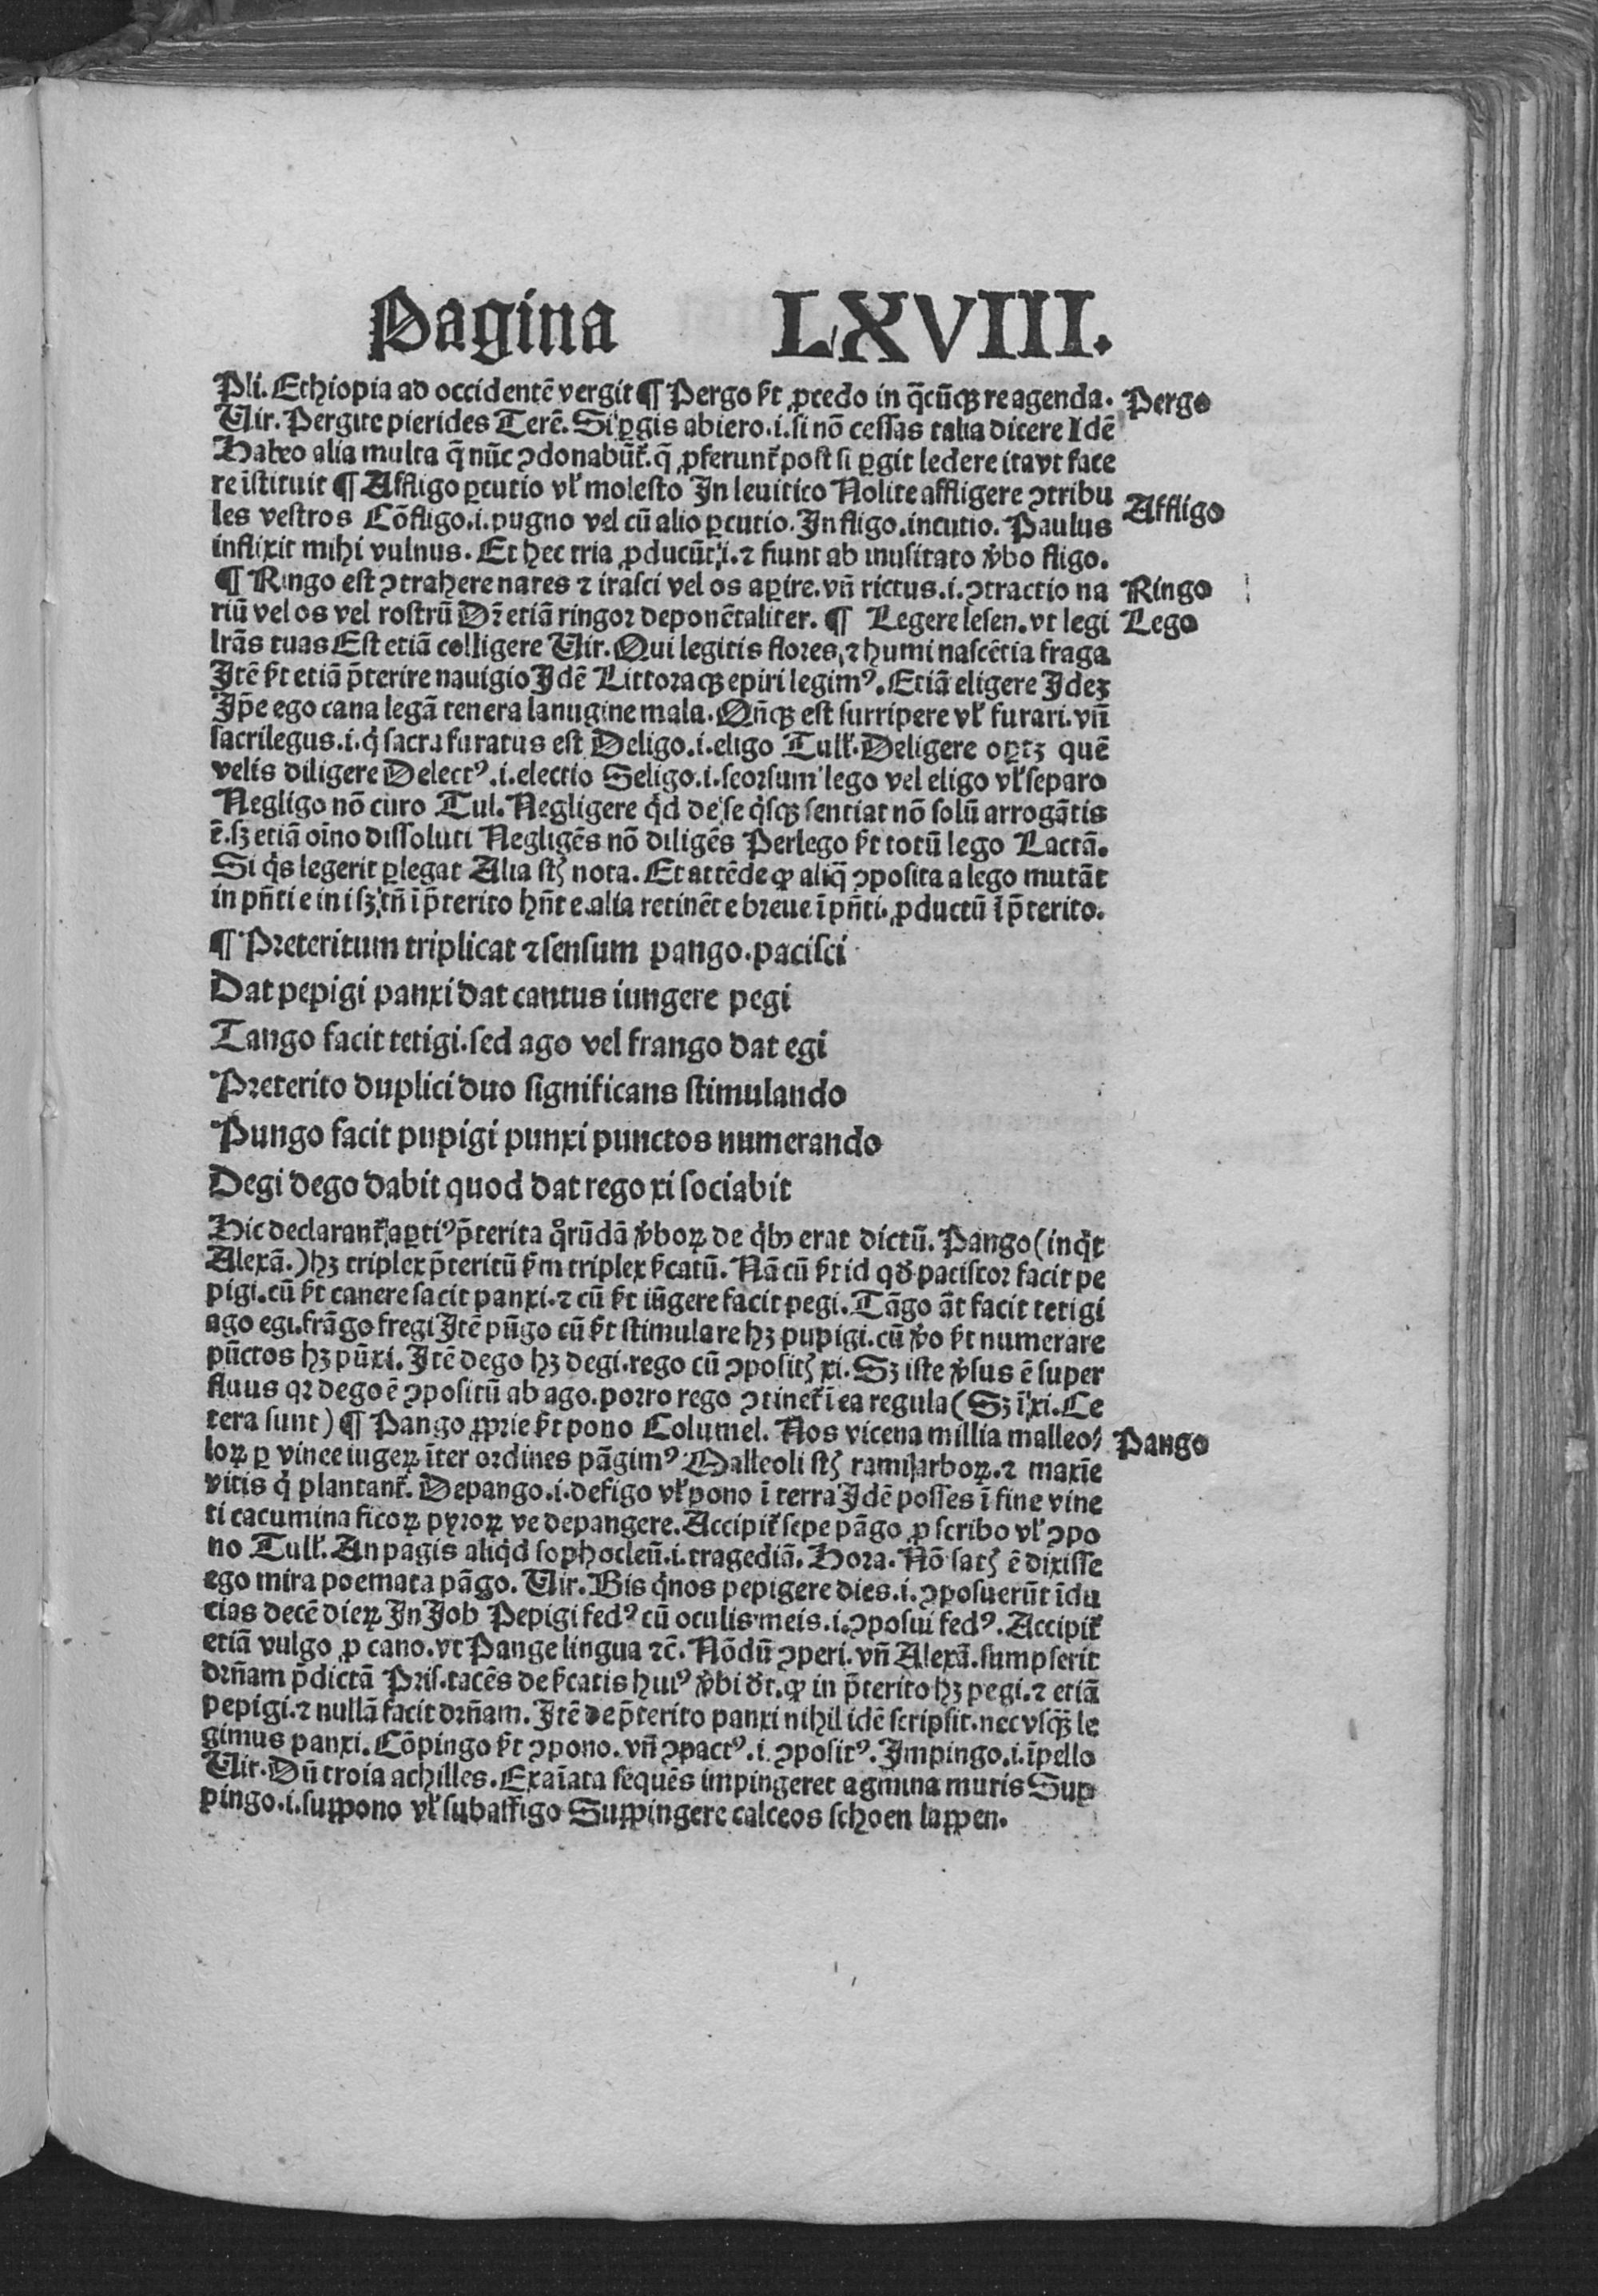 Pagina LXVIII.
Pli. Ethiopia ad occidentē vergit ¶ Pergo ſꝫt ꝓcedo in q̄cūqꝫ re agenda. Pergo
Uir. Pergite pierides Terē. Si ꝑgis abiero .i. ſi nō ceſſas talia dicere Idē
Habeo alia multa q̄ nūc ↄdonabūt̉. q̄ ꝓferunt̉ poſt ſi ꝑgit ledere ita vt face
re īſtituit ¶ Affligo ꝑcutio vľ moleſto In leuitico Nolite affligere ↄtribu Affligo
les veſtros Cōfligo .i. pugno vel cū alio ꝑcutio. Infligo. incutio. Paulus
inflixit mihi vulnus. Et hec tria ꝓducūt i. ⁊ fiunt ab inuſitato v̉bo fligo.
¶ Ringo eſt ↄtrahere nares ⁊ iraſci vel os aꝑire. vn̄ rictus .i. ↄtractio na Ringo
riū vel os vel roſtrū Dr̄ etiā ringor deponētaliter. ¶ Legere leſen. vt legi Lego
lrās tuas Eſt etiā colligere Uir. Qui legitis flores, ⁊ humi naſcētia fraga
Itē ſꝫt etiā p̄terire nauigio Idē Littoraqꝫ epiri legimꝰ. Etiā eligere Ideꝫ
Ip̄e ego cana legā tenera lanugine mala. Qn̄qꝫ eſt ſurripere vľ furari. vn̄
ſacrilegus .i. q̇ ſacra furatus eſt Deligo .i. eligo Tuľ. Deligere oꝑtꝫ quē
velis diligere Delectꝰ .i. electio Seligo .i. ſeorſum lego vel eligo vľ ſeparo
Negligo nō curo Tul. Negligere q̇d de ſe q̇ſqꝫ ſentiat nō ſolū arrogātis
ē. ſꝫ etiā oīno diſſoluti Negligēs nō diligēs Perlego ſꝫt totū lego Lactā.
Si q̇s legerit ꝑlegat Alia ſtꝭ nota. Et attēde ꝙ aliq̄ ↄpoſita a lego mutāt
in pn̄ti e in i ſꝫ tn̄ ī p̄terito hn̄t e. alia retinēt e breue ī pn̄ti. ꝓductū ī p̄terito.
¶ Preteritum triplicat ⁊ ſenſum pango. paciſci
Dat pepigi panxi dat cantus iungere pegi
Tango facit tetigi. ſed ago vel frango dat egi
Preterito duplici duo ſignificans ſtimulando
Pungo facit pupigi punxi punctos numerando
Degi dego dabit quod dat rego xi ſociabit
Hic declarant̉ aꝑtiꝰ p̄terita q̊rūdā v̉boꝝ de q̇bꝫ erat dictū. Pango (inq̇t
Alexā.) hꝫ triplex p̄teritū ſꝫm triplex ſꝫcatū. Nā cū ſꝫt id qď paciſcor facit pe
pigi. cū ſꝫt canere facit panxi. ⁊ cū ſꝫt iūgere facit pegi. Tāgo āt facit tetigi
ago egi. frāgo fregi Itē pūgo cū ſꝫt ſtimulare hꝫ pupigi. cū v̉o ſꝫt numerare
pūctos hꝫ pūxi. Itē dego hꝫ degi. rego cū ↄpoſitꝭ xi. Sꝫ iſte v̉ſus ē ſuper
fluus qꝛ dego ē ↄpoſitū ab ago. porro rego ↄtinet̉ ī ea regula (Sꝫ ī xi. Ce
tera ſunt) ¶ Pango ꝓprie ſꝫt pono Columel. Nos vicena millia malleo⸗ Pango
loꝝ ꝑ vinee iugeꝝ īter ordines pāgimꝰ Malleoli ſtꝭ rami arboꝝ. ⁊ maxīe
vitis q̇ plantant̉. Depango .i. defigo vľ pono ī terra Idē poſſes ī fine vine
ti cacumina ficoꝝ pyroꝝ ve depangere. Accipit̉ ſepe pāgo ꝓ ſcribo vľ ↄpo
no Tuľ. An pagis aliq̇d ſophocleū .i. tragediā. Hora. Nō ſatꝭ ē dixiſſe
ego mira poemata pāgo. Uir. Bis q̇nos pepigere dies .i. ↄpoſuerūt īdu
cias decē dieꝝ In Job Pepigi fedꝰ cū oculis meis .i. ↄpoſui fedꝰ. Accipit̉
etiā vulgo ꝓ cano. vt Pange lingua ⁊c̄. Nōdū ↄperi. vn̄ Alexā. ſumpſerit
drn̄am p̄dictā Priſ. tacēs de ſꝫcatis huiꝰ v̉bi ďt. ꝙ in p̄terito hꝫ pegi. ⁊ etiā
pepigi. ⁊ nullā facit drn̄am. Itē de p̄terito panxi nihil idē ſcripſit. nec vſqꝫ le
gimus panxi. Cōpingo ſꝫt ↄpono. vn̄ ↄpactꝰ .i. ↄpoſitꝰ. Impingo .i. īpello
Uir. Dū troia achilles. Exaīata ſequēs impingeret agmina muris Sup
pingo .i. ſuppono vľ ſubaffigo Suppingere calceos ſchoen lappen.